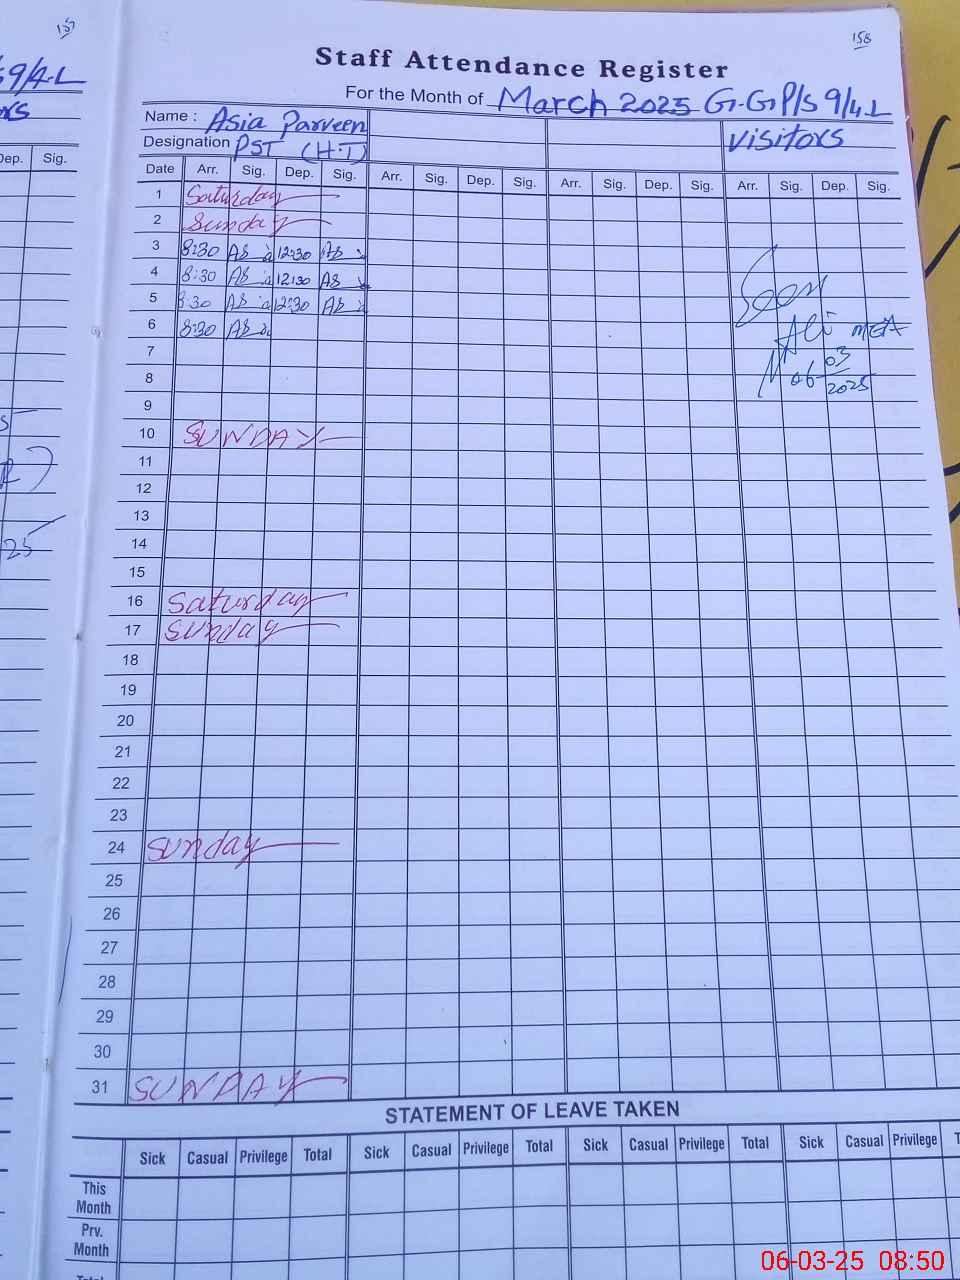 157
158
Staff Attendance Register
For the Month of March 2025 G.G.P/S 9/4.L
9/4-L
Name : Asia Parveen
Designation PST (H.T)
Visitors
Dep. Sig.
Date Arr. Sig. Dep. Sig. Arr. Sig. Dep. Sig. Arr. Sig. Dep. Sig. Arr. Sig. Dep. Sig.
1 Saturday
2 Sunday
3 8:30 12:30
4 8:30 12:30
5 8:30 12:30
6 8:30
Seen
Ali MEA
06-03-2025
7
8
9
10 SUNDAY
11
12
13
14
15
16 Saturday
17 Sunday
18
19
20
21
22
23
24 Sunday
25
26
27
28
29
30
31 SUNDAY
25
STATEMENT OF LEAVE TAKEN
Sick Casual Privilege Total Sick Casual Privilege Total Sick Casual Privilege Total Sick Casual Privilege
This Month
Prv. Month
Total
06-03-25 08:50